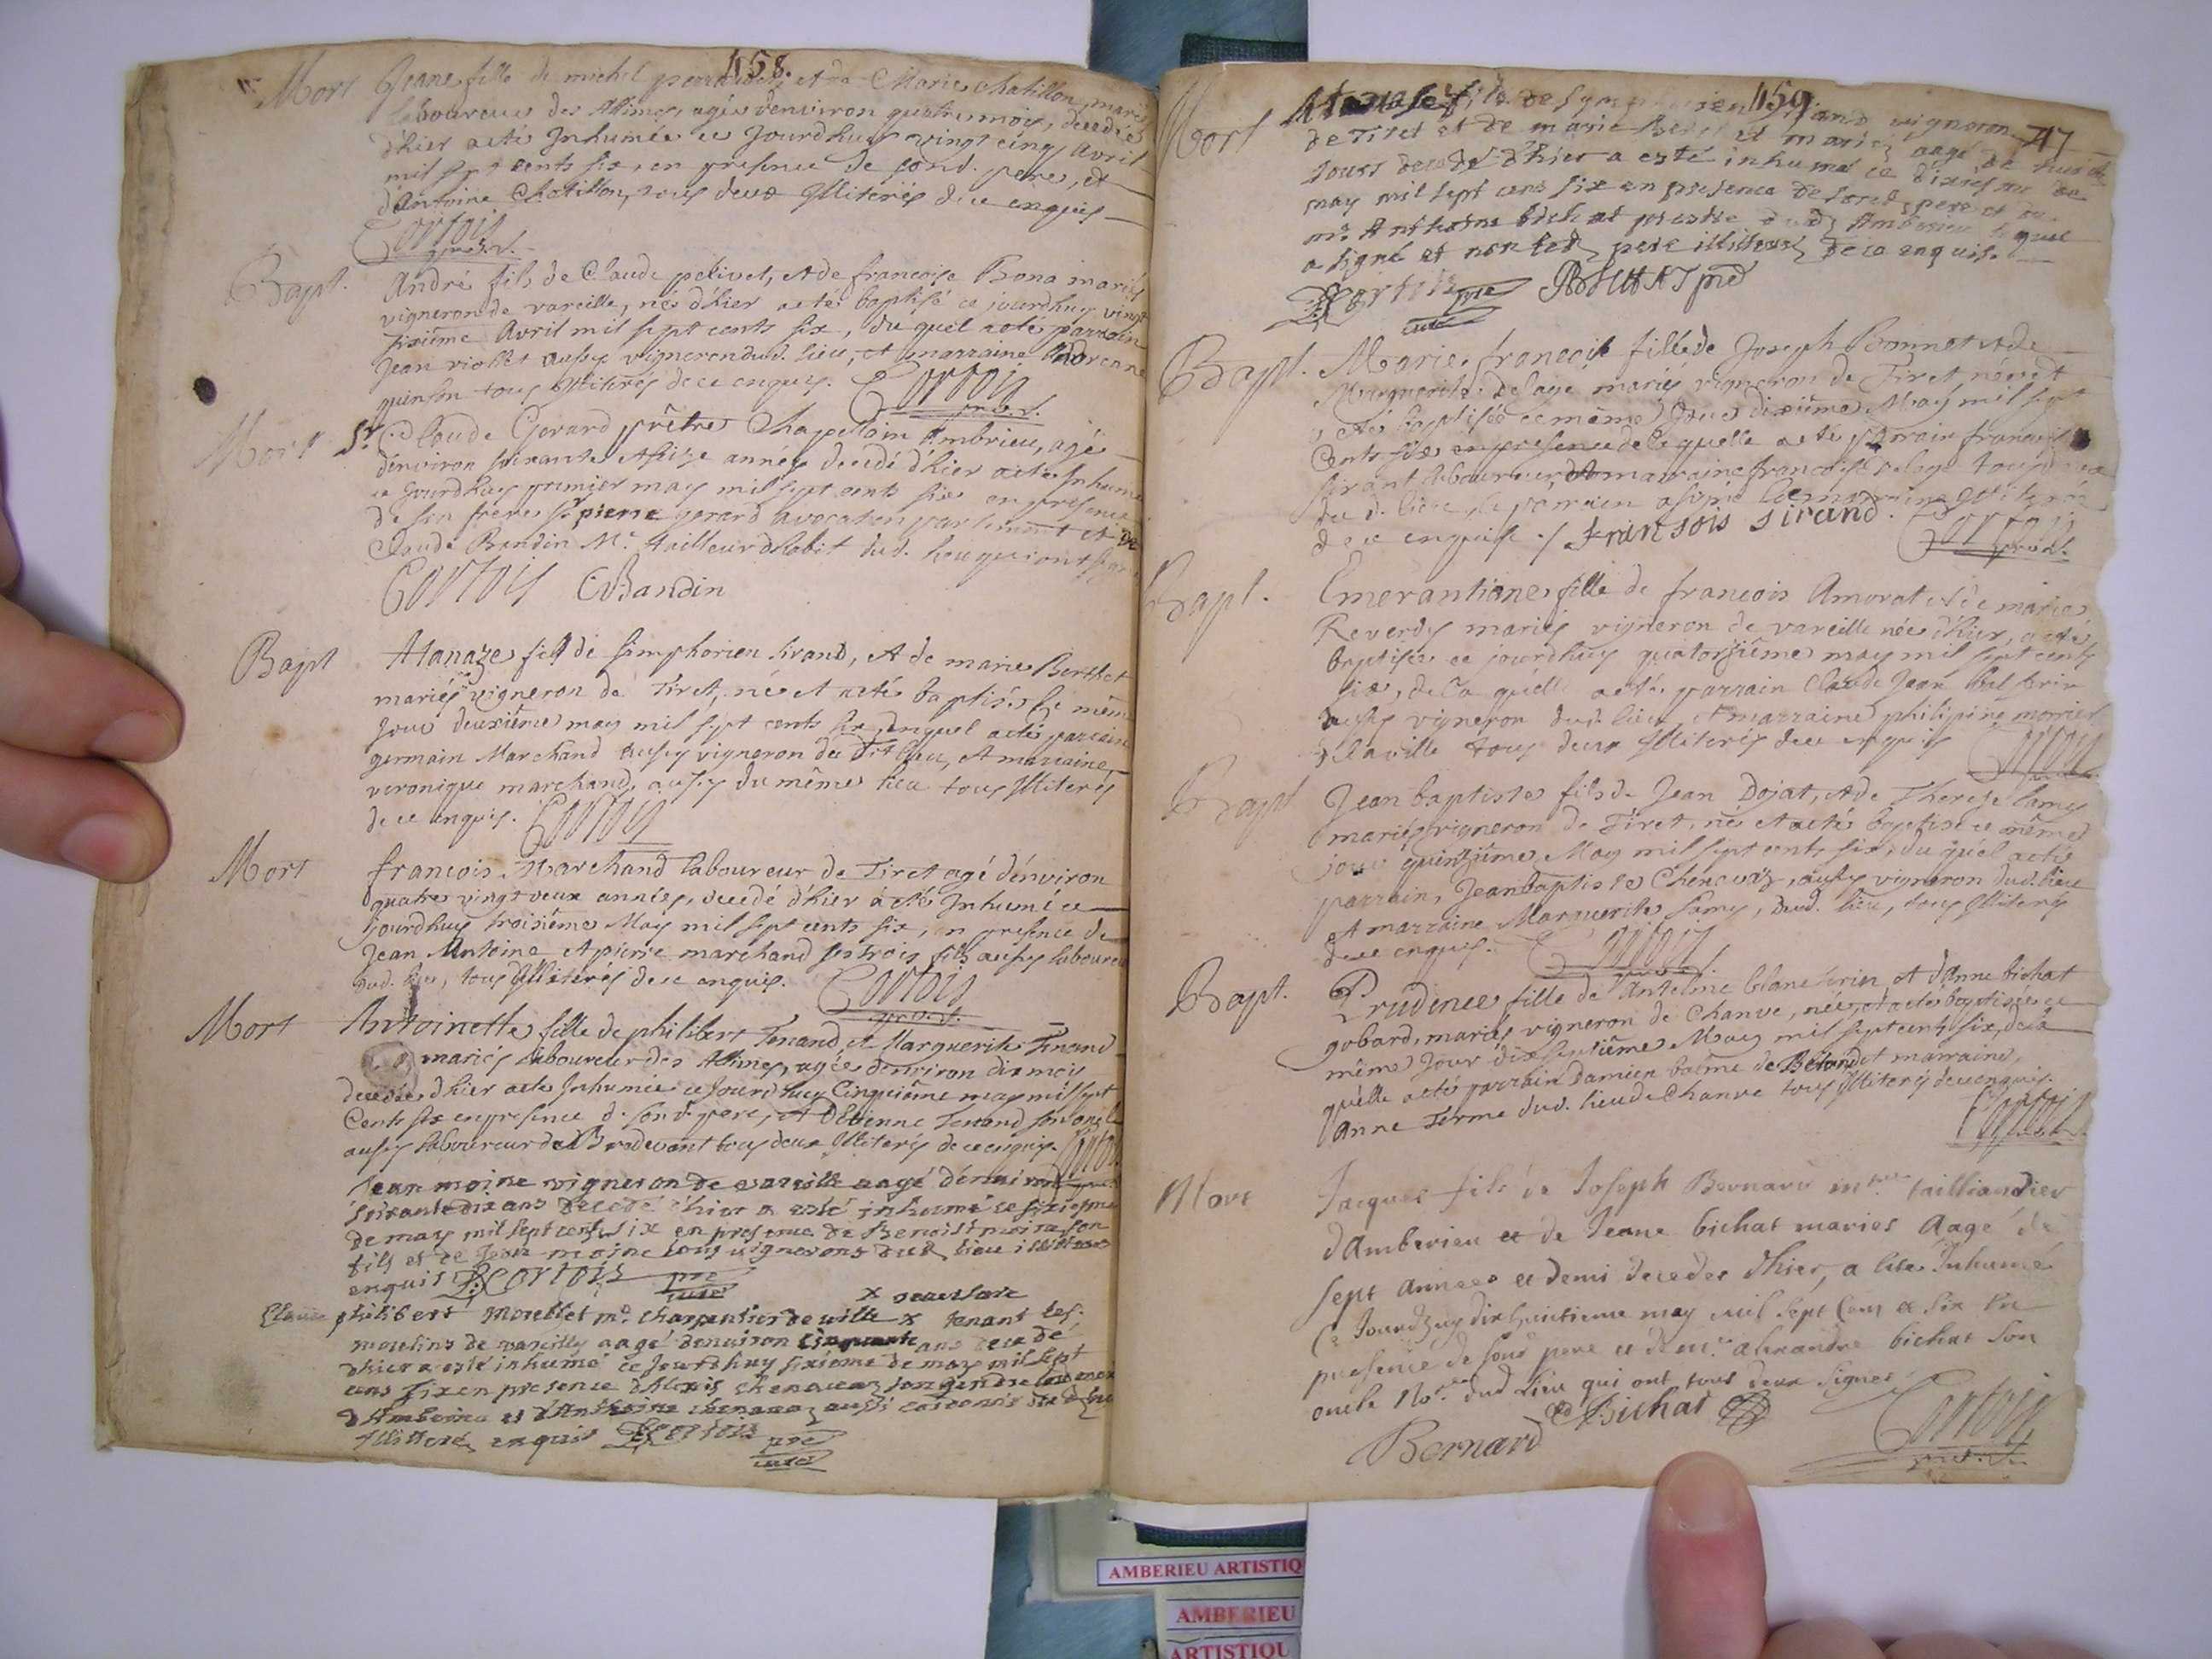 158.
Mort Jeane fille de michel et de Marie chatillon mariés
laboureur des Allimes, agée d'environ quatre mois, decedée
d'hier a eté Inhumée ce Jourdhuy vingt cinq Avril
mil sept cents six, en presence de sond. pere, et
d'Antoine Chatillon, tous deux Illiterés de ce enquis
Cortois
Bapt. André fils de Claude pelivet, et de francoise Bona mariés
vigneron de vareille, né d'hier a eté baptisé ce jourdhuy vingt
sixiême Avril mil sept cents six, du quel a eté parrain
Jean viollet aussy vigneron dud. lieu, et marraine Andreane
quinson tous Illiterés de ce enquis. Cortois
Mort Sr. Claude Gerard prêtre Chapellain Ambrieu, agé
d'environ soixante et seize années decedé d'hier a eté Inhumé
ce Jourdhuy premier may mil sept cents six en presence
de son frere Sr pierre gerard avocat en parlement et de
Claude Bandin Me. tailleur d'habit dud. lieu qui ont signé
Cortois CBandin
Bapt Atanaze fils de simphorien sirand, et de marie Berthet
mariés vigneron de Tiret, né et a eté baptisé le même
Jour deuxiême may mil sept cents six, duquel a eté parrain
germain Marchand aussy vigneron du dit lieu, et marraine
veronique marchand, aussy du même lieu tous Illiterés
de ce enquis. Cortois
Mort francois Marchand laboureur de Tiret agé d'environ
quatre vingt deux années, decedé d'hier a eté Inhumé ce
Jourdhuy troisiême May mil sept cents six, en presence de
Jean Antoine et pierre marchand ses trois fils aussy laboureur
dud. lieu, tous Illiterés de ce enquis. Cortois
Mort Antoinette fille de philibert Tenand et Marguerite Tenand
mariés laboureur des Allimes, agée d'environ dix mois
decedée d'hier a eté Inhumée ce Jourdhuy Cinquiême may mil sept
Cents six en presence d. sond. pere, et d'Etienne Tenand son oncle
aussy laboureur de Brodevant tous deux Illiterés de ce enquis. Cortois
Jean moine vigneron de vareille aagé denviron
soixante dix ans decedé d'hier a esté inhumé ce sixiesme
de may mil sept cens six en presence de Benoist moine son
fils et de Jean moine tous vignerons dud. lieu illitere
enquis Cortois pre
curé
Claude philibert Morellet me. charpentier de ville x tenant les
moulins de vareilly aagé denviron cinquante ans decedé
dhier a esté inhumé ce jourdhuy sixieme de may mil sept
cens six en presence d'Alexis chenavaz son gendre
d'Amberieu et d'Anthoine chenavaz aussi
Illitteré enquis Cortois pre
curé
159
47
Mort Atanase fils de symphorien sirand vigneron
de Tiret et de marie Bertet mariez aagé de huict
jours decedé d'hier a esté inhumé ce dixiesme de
may mil sept cens six en presence de sond. pere et de
mre Anthoine bichat prestre dud. Amberieu lequel
a signé et non led. pere illitteré de ce enquis.
Cortois pre BICHAT
curé
Bapt. Marie francoise fille de Joseph Bonnet et de
Marguerite Delage mariés vigneron de Tiret née et
a eté baptisée ce même Jour dixiême May mil sept
Cents six en presence de laquelle a eté parrain francois
sirant laboureur et marraine francoise Delage tous deux
du d. lieu, le parrain a signé la marraine Illiterée
de ce enquise. / fransois sirand. Cortois
Bapt. Emerantiane fille de francois Amorat et de marie
Reverdy mariés vigneron de vareille née d'hier, a eté
baptisée ce jourdhuy quatorziême may mil sept cents
six, de la quelle a eté parrain Claude Jean
aussy vigneron dud. lieu et marraine philipine
de la ville tous deux Illiterés de ce enquis Cortois
Bapt Jean baptiste fils de Jean Dojat, et de Therese lamy
mariés vigneron de Tiret, né et a eté baptisé ce même
jour quinziême May mil sept cents six, du quel a eté
parrain, Jean baptiste Chenavaz, aussy vigneron dud. lieu
et marraine Marguerite lamy, dud. lieu, tous Illiterés
de ce enquis. Cortois
Bapt. Prudence fille de Antelme blanc et d'Anne bichat
gobard, mariés vigneron de Chanve, née, et a eté baptisée ce
même Jour dixseptiême May mil sept cents six, de la
quelle a eté parrain Damien balme de Betand et marraine,
Anne Terme dud. lieu de Chanve tous Illiterés de ce enquis.
Cortois
Mort Jacques fils de Joseph Bernard mtre tailliandier
dAmberieu et de Jeane bichat mariés aagé de
sept années et demi decedes d'hier, a este Inhumé
ce Jourdhuy dixhuitieme may mil sept cens et six en
presence de sond pere et de me. alexandre bichat son
oncle Nore. dud lieu qui ont tous deux signes
Bernard Bichat Cortois